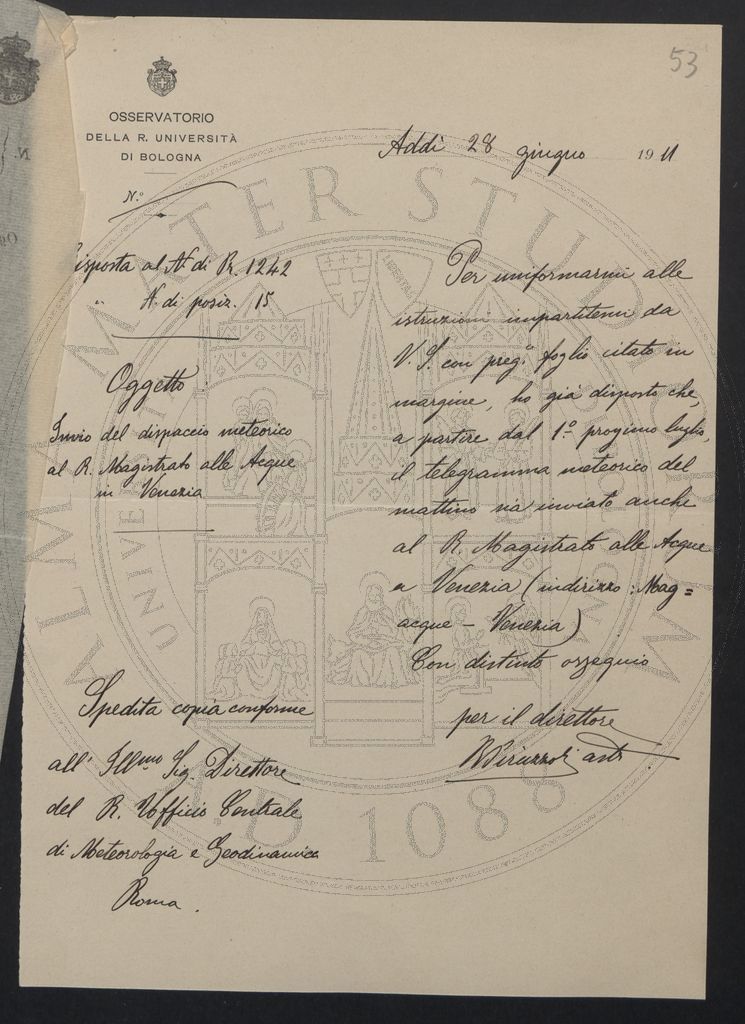 53
OSSERVATORIO
DELLA R. UNIVERSITÀ
DI BOLOGNA
N.º
Addì 28 giugno 1911
isposta al N. di Pr. 1242
" N. di posiz. 15
Oggetto
Invio del dispaccio meteorico
al R. Magistrato alle Acque
in Venezia
Per uniformarmi alle
istruzioni impartitemi da
V. S. con preg.º foglio citato in
margine, ho già disposto che,
a partire dal 1º prossimo luglio,
il telegramma meteorico del
mattino sia inviato anche
al R. Magistrato alle Acque
a Venezia (indirizzo: Mag=
acque - Venezia)
Con distinto ossequio
per il direttore
Spedita copia conforme
all' Ill.mo Sig. Direttore
del R. Ufficio Centrale
di Meteorologia e Geodinamica
Roma.
ALMA MATER STUDIORUM
A.D. 1088